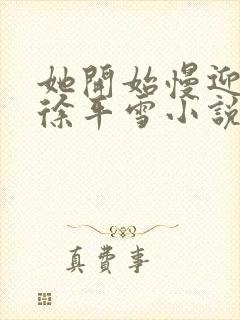 她開始慢迎
徐平雪小說
真費事